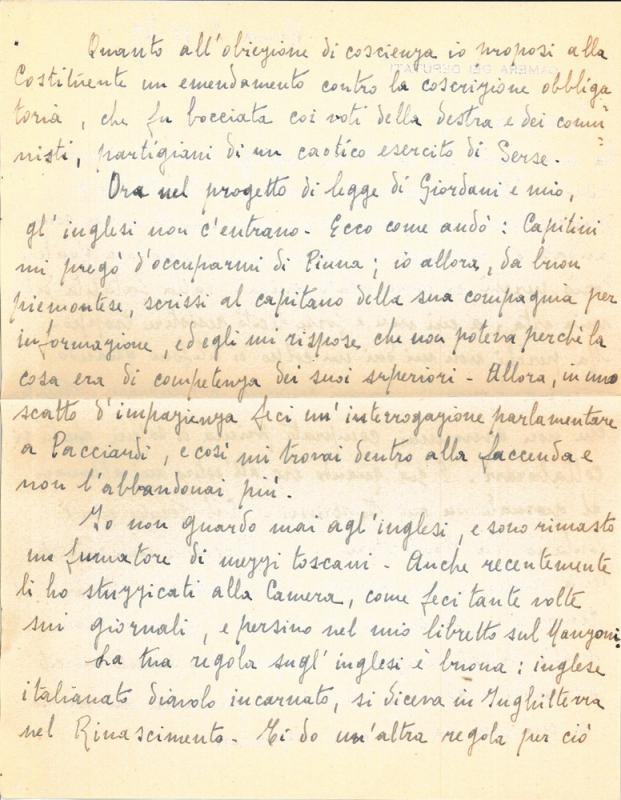 Quanto all'obiezione di coscienza io proposi alla
Costituente un emendamento contro la coscrizione obbliga
toria, che fu bocciata coi voti della destra e dei comu-
nisti, partigiani di un caotico esercito di Serse.
Ora nel progetto di legge di Giordani e mio,
gl'inglesi non c'entrano. Ecco come andò: Capitini
mi pregò d'occuparmi di Pinna; io allora, da buon
piemontese, scrissi al capitano della sua compagnia per
informazione, ed egli mi rispose che non poteva perchè la
cosa era di competenza dei suoi superiori. Allora, in uno
scatto d'impazienza feci un'interrogazione parlamentare
a Pacciardi, e così mi trovai dentro alla faccenda e
non l'abbandonai più.
Io non guardo mai agl'inglesi, e sono rimasto
un fumatore di mezzi toscani. Anche recentemente
li ho stuzzicati alla Camera, come feci tante volte
sui giornali, e persino nel mio libretto sul Manzoni.
La tua regola sugl'inglesi è buona: inglese
italianato diavolo incarnato, si diceva in Inghilterra
nel Rinascimento. Ti do un'altra regola per ciò
CAMERA DEI DEPUTATI